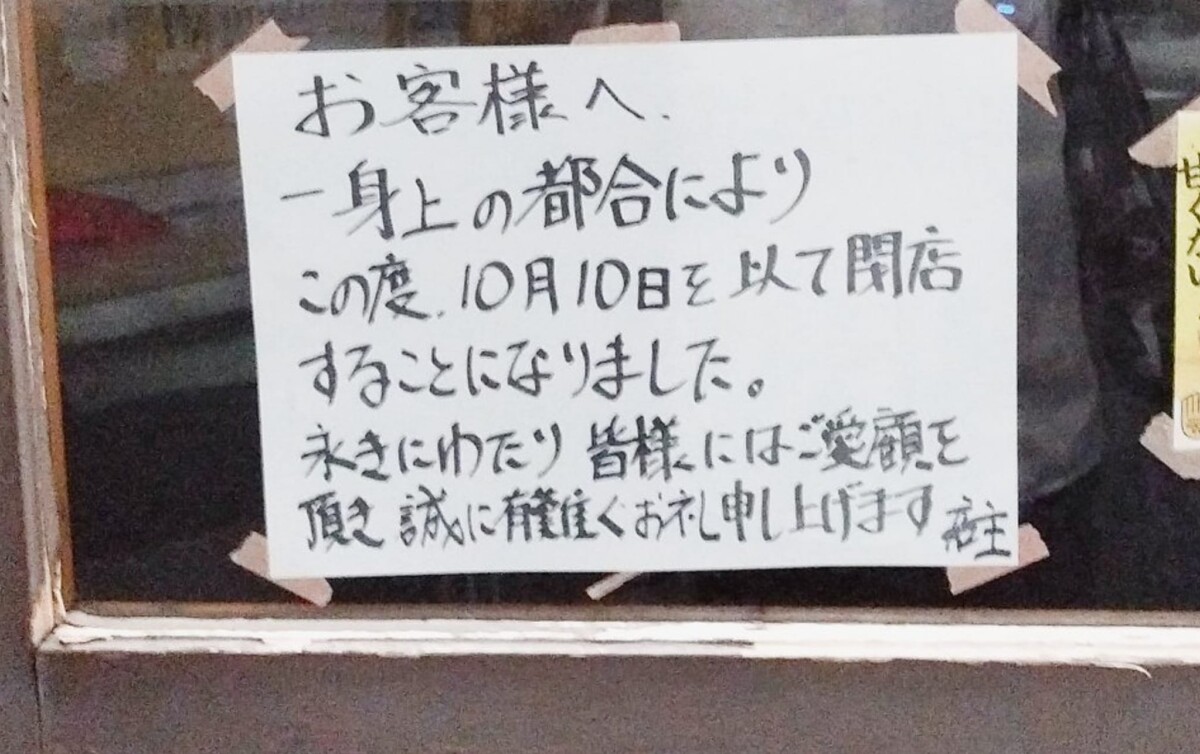 お客様へ.
一身上の都合により
この度.10月10日を以て閉店
することになりました。
永きにわたり皆様にはご愛顧を
頂き誠に有難くお礼申し上げます 店主